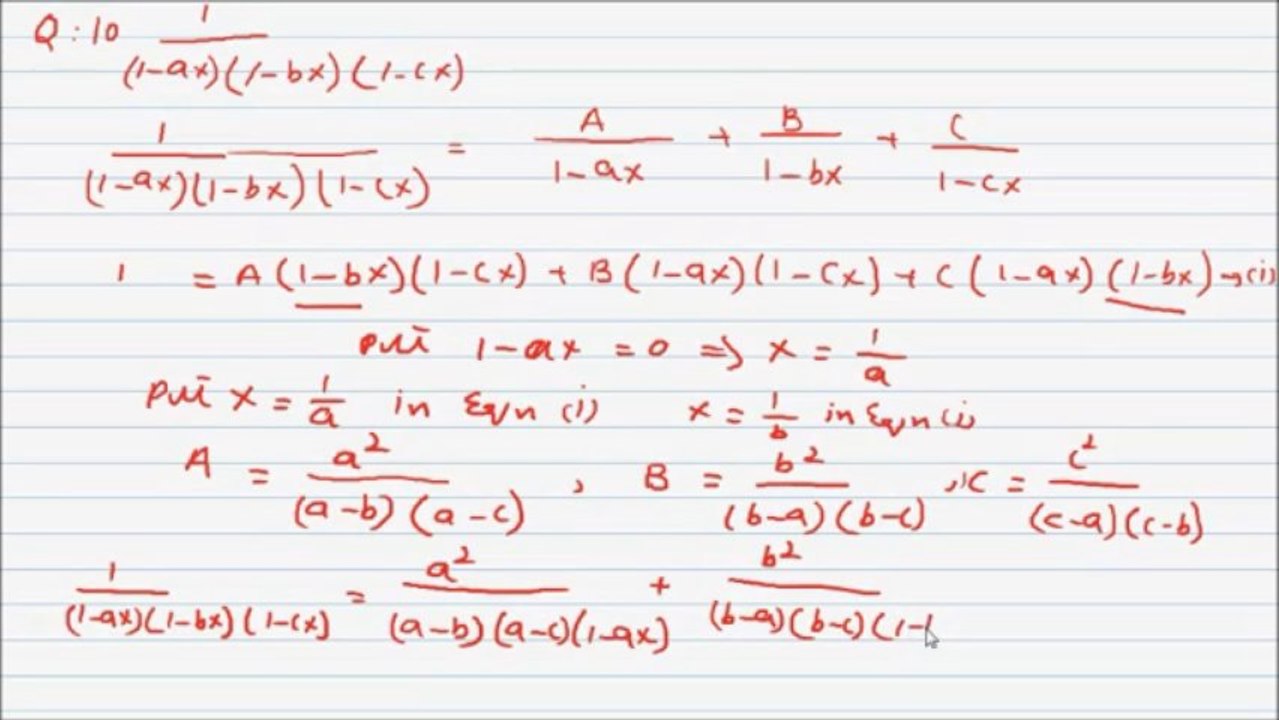 Q : 10 1/((1-ax)(1-bx)(1-cx))
1/((1-ax)(1-bx)(1-cx)) = A/(1-ax) + B/(1-bx) + C/(1-cx)
1 = A(1-bx)(1-cx) + B(1-ax)(1-cx) + C(1-ax)(1-bx) → (i)
put 1-ax = 0 ⇒ x = 1/a
put x = 1/a in Eqn (i) x = 1/b in Eqn (i)
A = a²/((a-b)(a-c)) , B = b²/((b-a)(b-c)) , C = c²/((c-a)(c-b))
1/((1-ax)(1-bx)(1-cx)) = a²/((a-b)(a-c)(1-ax)) + b²/((b-a)(b-c)(1-